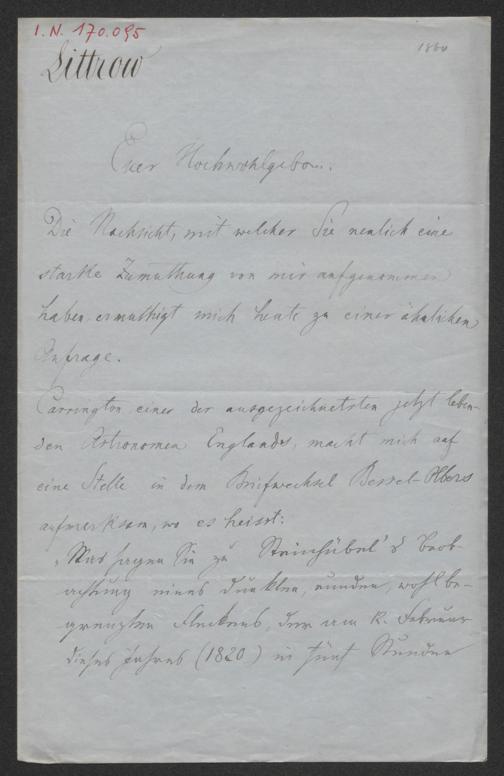 I. N. 170.095
Littrow
1860
Euer Hochwohlgebor..
Die Nachsicht, mit welcher Sie neulich eine
starke Zumuthung von mir aufgenommen
haben ermuthigt mich heute zu einer ähnlichen
Anfrage.
Carrington einer der ausgezeichnetsten jetzt leben-
den Astronomen Englands, macht mich auf
eine Stelle in dem Briefwechsel Bessel-Olbers
aufmerksam, wo es heisst:
„Was sagen Sie zu Steinhübel's Beob-
achtung eines dunklen, runden, wohl be-
grenzten Fleckens, der am 12. Februar
dieses Jahres (1820) in fünf Stunden